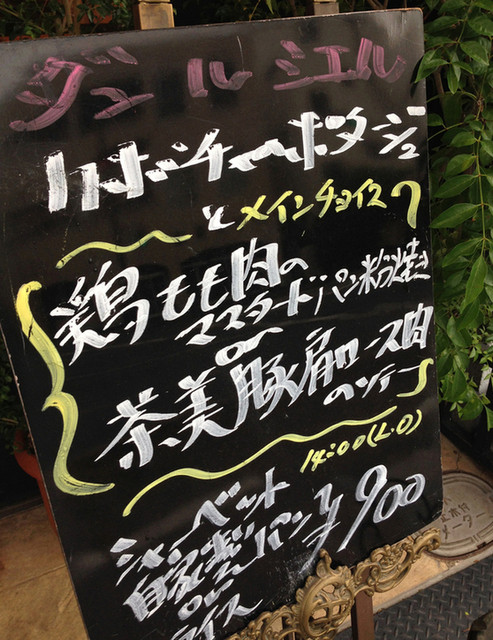 ジュールシエル
パンポーチャーポタージュ
とメインチョイス
鶏もも肉の
マスタードパン粉焼き
or
茶美豚肩ロース肉
のソテー
14:00(L.O)
シャーベット
自家製パン ¥900
or
ライス
メーター